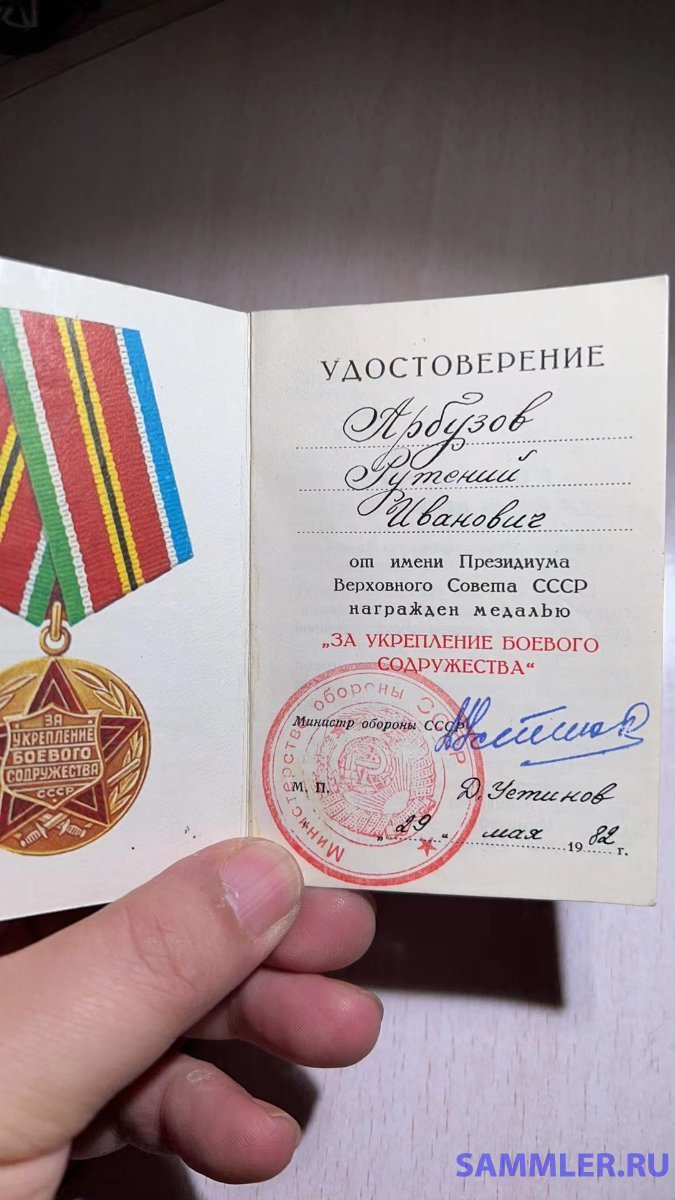 ЗА
УКРЕПЛЕНИЕ
БОЕВОГО
СОДРУЖЕСТВА
СССР
УДОСТОВЕРЕНИЕ
Арбузов
Рутений
Иванович
от имени Президиума
Верховного Совета СССР
награжден медалью
„ЗА УКРЕПЛЕНИЕ БОЕВОГО
СОДРУЖЕСТВА“
Министр обороны СССР
Министерство обороны СССР
М. П.
Д. Устинов
„29“ мая 1982 г.
SAMMLER.RU